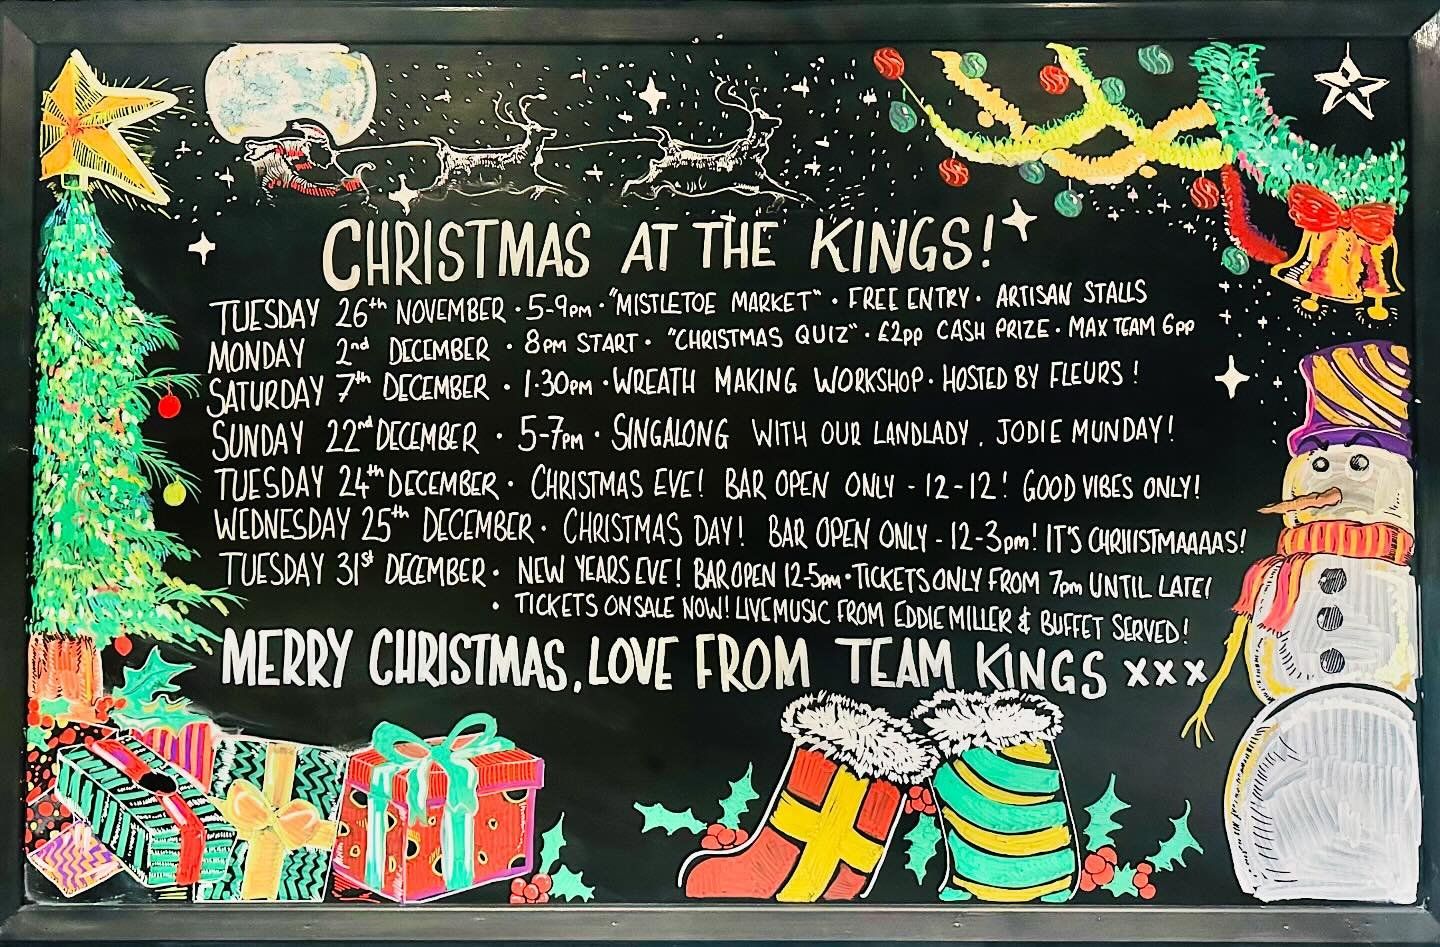 CHRISTMAS AT THE KINGS!
TUESDAY 26th NOVEMBER · 5-9pm · "MISTLETOE MARKET" · FREE ENTRY · ARTISAN STALLS
MONDAY 2nd DECEMBER · 8pm START · "CHRISTMAS QUIZ" · £2pp CASH PRIZE · MAX TEAM 6pp
SATURDAY 7th DECEMBER · 1·30pm · WREATH MAKING WORKSHOP · HOSTED BY FLEURS!
SUNDAY 22nd DECEMBER · 5-7pm · SINGALONG WITH OUR LANDLADY, JODIE MUNDAY!
TUESDAY 24th DECEMBER · CHRISTMAS EVE! BAR OPEN ONLY - 12-12! GOOD VIBES ONLY!
WEDNESDAY 25th DECEMBER · CHRISTMAS DAY! BAR OPEN ONLY - 12-3pm! IT'S CHRIIISTMAAAAS!
TUESDAY 31st DECEMBER · NEW YEARS EVE! BAR OPEN 12-5pm · TICKETS ONLY FROM 7pm UNTIL LATE!
· TICKETS ON SALE NOW! LIVE MUSIC FROM EDDIE MILLER & BUFFET SERVED!
MERRY CHRISTMAS, LOVE FROM TEAM KINGS xxx